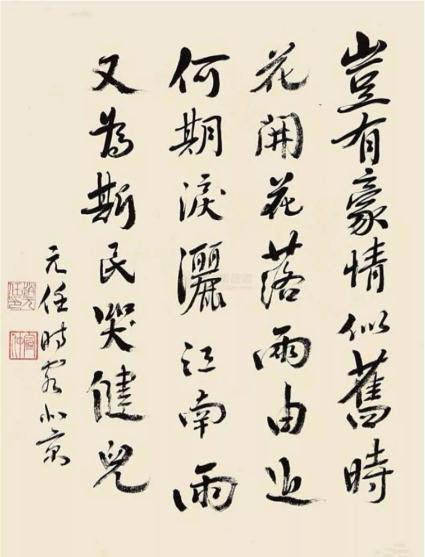 豈有豪情似舊時
花開花落兩由之
何期淚灑江南雨
又為斯民哭健兒
元任時客北京